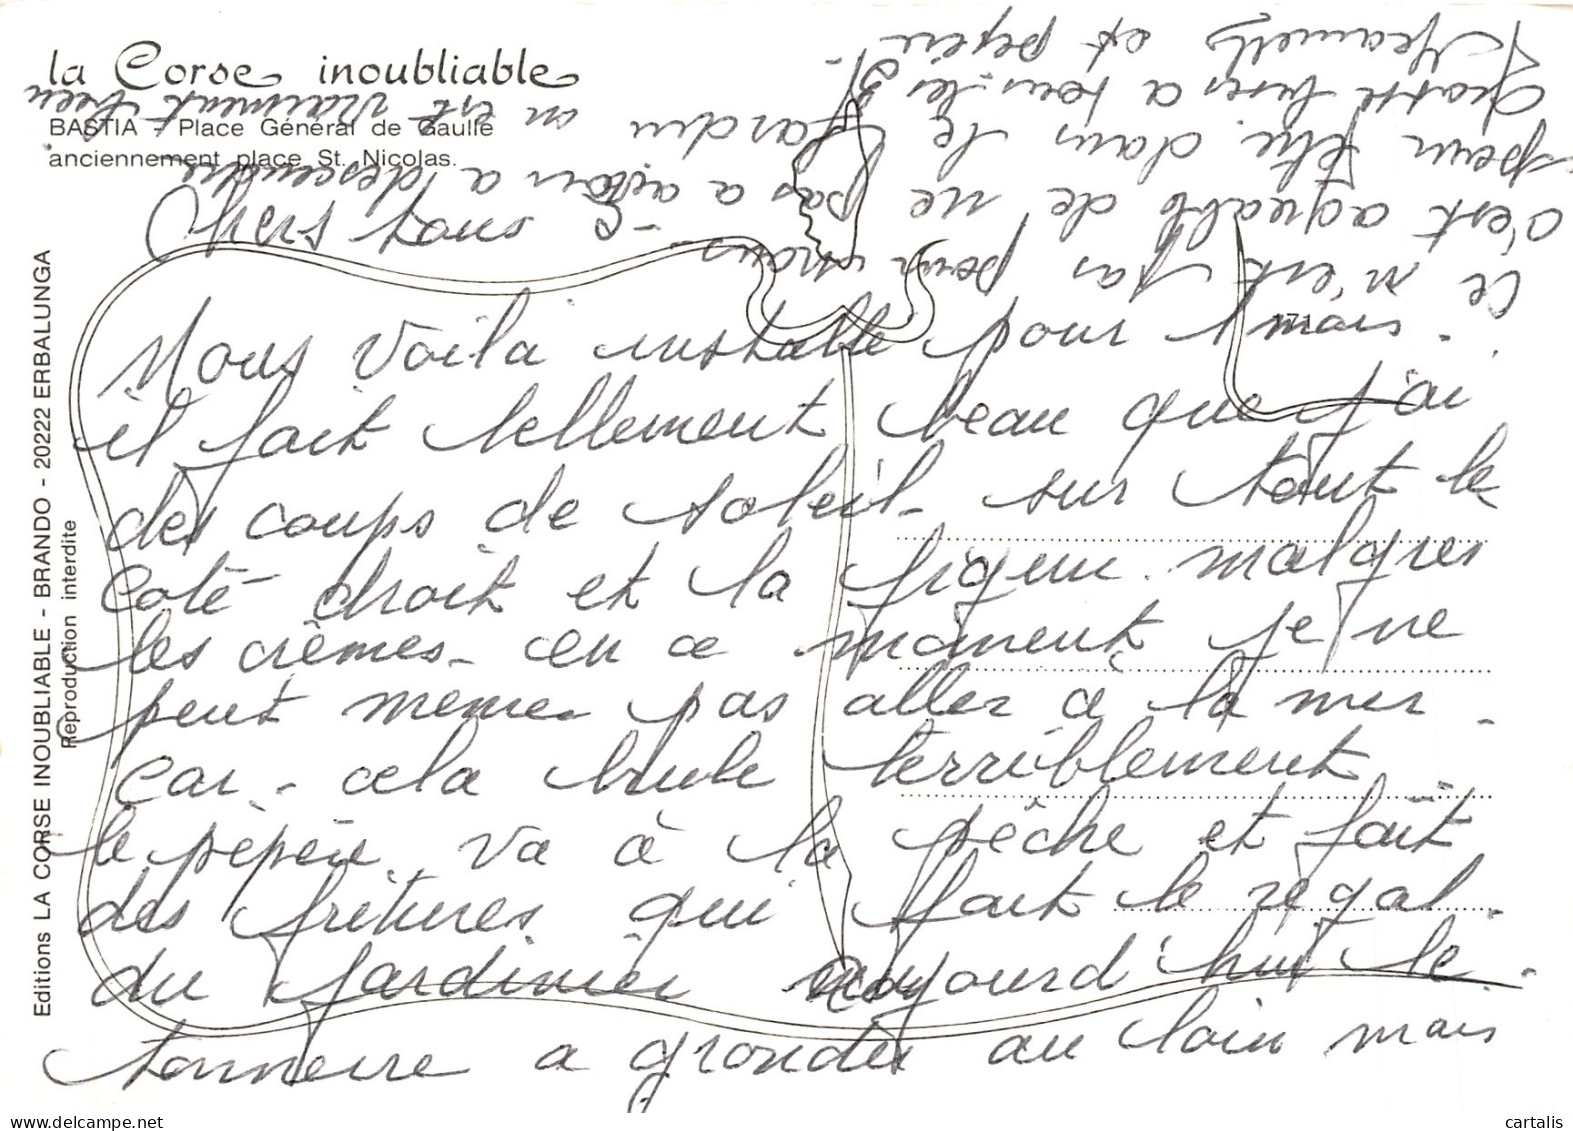 la Corse inoubliable
BASTIA - Place Général de Gaulle
anciennement place St. Nicolas.
Editions LA CORSE INOUBLIABLE - BRANDO - 20222 ERBALUNGA
Reproduction interdite
Chers tous
Nous voilà installé pour 1 mois.
il fait tellement beau que j'ai
des coups de soleil - sur tout le
coté droit et la figure malgres
les crèmes - en ce moment je ne
peut meme pas aller à la mer.
car - cela brule terriblement.
le pépère va à la pêche et fait
des fritures qui fait le regal.
du jardinier aujourd'hui le.
tonnerre a grondés au loin mais
ce n'est pas pour nous
c'est agreable de ne pas a avoir a descendre
pour etre dans le jardin on est vraiment bien
Grosse bises a tous les
et pepere
cartalis